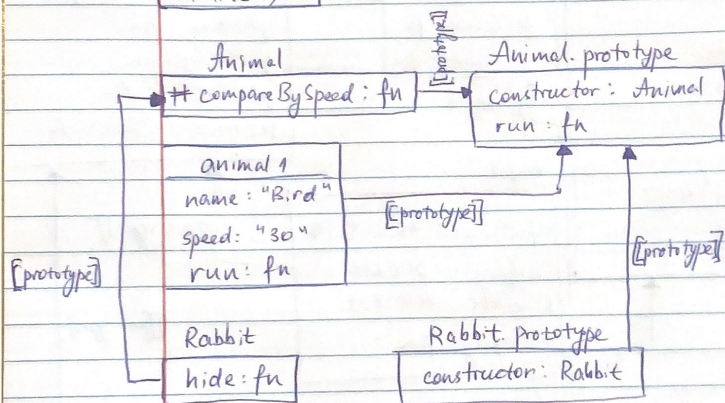 Animal
# compareBySpeed: fn
[[prototype]]
Animal.prototype
constructor: Animal
run: fn
animal 1
name: "Bird"
speed: "30"
run: fn
[[prototype]]
[[prototype]]
[[prototype]]
Rabbit
hide: fn
Rabbit.prototype
constructor: Rabbit